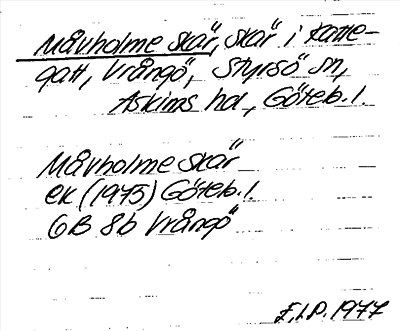 Måvholme skär, skär i Katte-
gatt, Vrångö, Styrsö sn,
Askims hd, Göteb. l.
Måvholme skär
ek (1975) Göteb. l.
6B 8b Vrångö
E.I.P. 1977